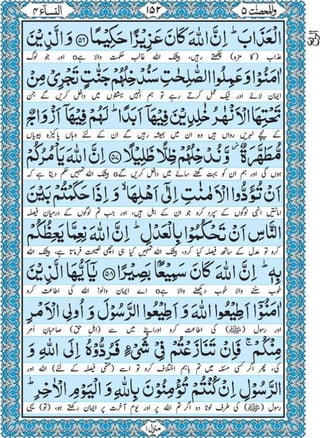 والمحصنت ۵ ۱۵۲ النسآء ۴
الْعَذَابَ ؕ اِنَّ اللّٰهَ كَانَ عَزِیْزًا حَكِیْمًا ﴿۵۶﴾ وَالَّذِیْنَ
عذاب (کا مزہ) چکھتے رہیں، بیشک اللہ غالب حکمت والا ہے o اور جو لوگ
اٰمَنُوْا وَعَمِلُوا الصّٰلِحٰتِ سَنُدْخِلُهُمْ جَنّٰتٍ تَجْرِیْ مِنْ
ایمان لائے اور نیک عمل کرتے رہے ہم انہیں بہشتوں میں داخل کریں گے جن
تَحْتِهَا الْاَنْهٰرُ خٰلِدِیْنَ فِیْهَاۤ اَبَدًا ؕ لَهُمْ فِیْهَاۤ اَزْوَاجٌ
کے نیچے نہریں رواں ہیں وہ ان میں ہمیشہ رہیں گے ان کے لئے وہاں پاکیزہ بیویاں
مُّطَهَّرَةٌ ؗ وَّنُدْخِلُهُمْ ظِلًّا ظَلِیْلًا ﴿۵۷﴾ اِنَّ اللّٰهَ یَاْمُرُكُمْ
ہوں گی اور ہم ان کو بہت گھنے سائے میں داخل کریں گے o بیشک اللہ تمہیں حکم دیتا ہے کہ
اَنْ تُؤَدُّوا الْاَمٰنٰتِ اِلٰۤی اَهْلِهَا ۙ وَاِذَا حَكَمْتُمْ بَیْنَ
امانتیں انہی لوگوں کے سپرد کرو جو ان کے اہل ہیں، اور جب تم لوگوں کے درمیان فیصلہ
النَّاسِ اَنْ تَحْكُمُوْا بِالْعَدْلِ ؕ اِنَّ اللّٰهَ نِعِمَّا یَعِظُكُمْ
کرو تو عدل کے ساتھ فیصلہ کیا کرو، بیشک اللہ تمہیں کیا ہی اچھی نصیحت فرماتا ہے، بیشک اللہ
بِهٖ ؕ اِنَّ اللّٰهَ كَانَ سَمِیْعًۢا بَصِیْرًا ﴿۵۸﴾ یٰۤاَیُّهَا الَّذِیْنَ
خوب سننے والا خوب دیکھنے والا ہے o اے ایمان والو! اللہ کی اطاعت کرو
اٰمَنُوْۤا اَطِیْعُوا اللّٰهَ وَاَطِیْعُوا الرَّسُوْلَ وَاُولِی الْاَمْرِ
اور رسول (ﷺ) کی اطاعت کرو اور اپنے میں سے (اہل حق) صاحبان امر
مِنْكُمْ ۚ فَاِنْ تَنَازَعْتُمْ فِیْ شَیْءٍ فَرُدُّوْهُ اِلَی اللّٰهِ وَ
کی، پھر اگر کسی مسئلہ میں تم باہم اختلاف کرو تو اسے (حتمی فیصلہ کے لئے) اللہ اور
الرَّسُوْلِ اِنْ كُنْتُمْ تُؤْمِنُوْنَ بِاللّٰهِ وَالْیَوْمِ الْاٰخِرِ ؕ
رسول (ﷺ) کی طرف لوٹا دو اگر تم اللہ پر اور یوم آخرت پر ایمان رکھتے ہو، (تو) یہی
منزل ۱